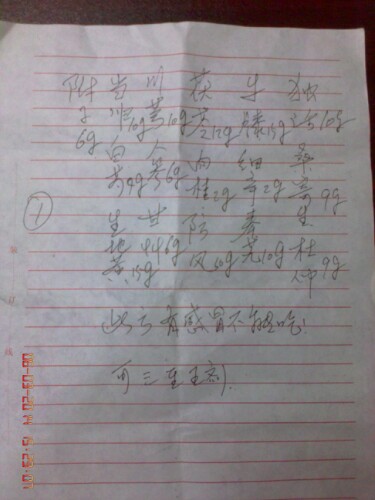 附子6g 当归10g 川芎10g 茯苓12g 牛膝15g 独活10g
白芍9g 人参6g 肉桂2g 细辛2g 桑寄生9g
①
生地黄15g 甘草6g 防风10g 秦艽10g 杜仲9g
此方有感冒不能吃
可三至五剂.